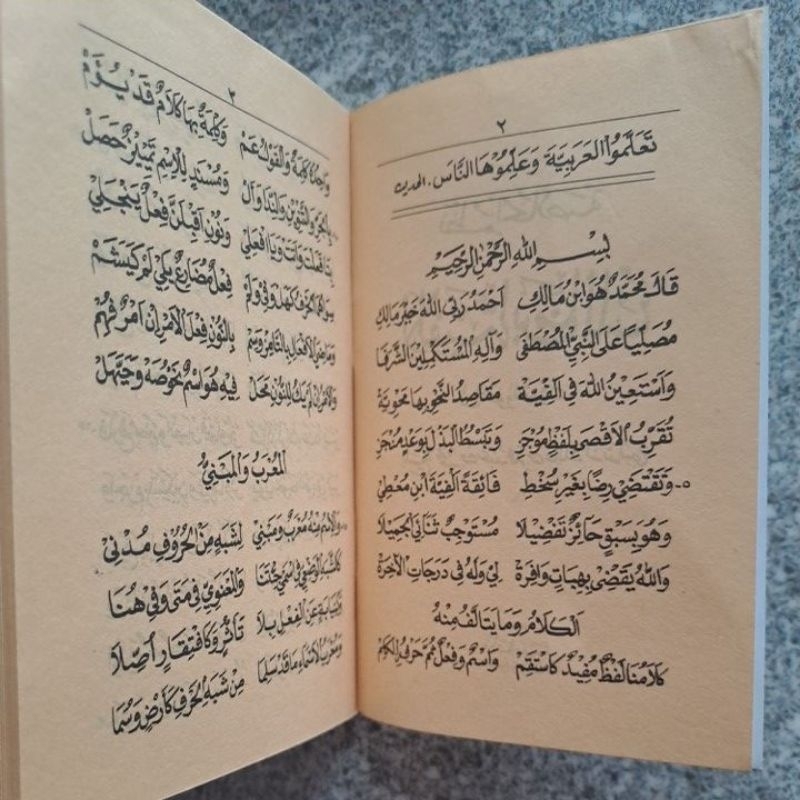 ٢
تَعَلَّمُوا الْعَرَبِيَّةَ وَعَلِّمُوْهَا النَّاسَ . الحديث
بِسْمِ اللهِ الرَّحْمٰنِ الرَّحِيْمِ
قَالَ مُحَمَّدٌ هُوَ ابْنُ مَالِكِ اَحْمَدُ رَبِّى اللهَ خَيْرَ مَالِكِ
مُصَلِّيًا عَلَى النَّبِيِّ الْمُصْطَفَى وَآلِهِ الْمُسْتَكْمِلِيْنَ الشَّرَفَا
وَاَسْتَعِيْنُ اللهَ فِى اَلْفِيَّةْ مَقَاصِدُ النَّحْوِ بِهَا مَحْوِيَّةْ
تُقَرِّبُ الْاَقْصَى بِلَفْظٍ مُوْجَزِ وَتَبْسُطُ الْبَذْلَ بِوَعْدٍ مُنْجَزِ
٥- وَتَقْتَضِيْ رِضًا بِغَيْرِ سُخْطِ فَائِقَةً اَلْفِيَّةَ ابْنِ مُعْطِيْ
وَهُوَ بِسَبْقٍ حَائِزٌ تَفْضِيْلَا مُسْتَوْجِبٌ ثَنَائِيَ الْجَمِيْلَا
وَاللهُ يَقْضِيْ بِهِبَاتٍ وَافِرَةْ لِيْ وَلَهُ فِى دَرَجَاتِ الْآخِرَةْ
اَلْكَلَامُ وَمَا يَتَأَلَّفُ مِنْهُ
كَلَامُنَا لَفْظٌ مُفِيْدٌ كَاسْتَقِمْ وَاسْمٌ وَفِعْلٌ ثُمَّ حَرْفٌ الْكَلِمْ
٣
وَاحِدُهُ كَلِمَةٌ وَالْقَوْلُ عَمْ وَكَلِمَةٌ بِهَا كَلَامٌ قَدْ يُؤَمْ
بِالْجَرِّ وَالتَّنْوِيْنِ وَالنِّدَا وَاَلْ وَمُسْنَدٍ لِلْاِسْمِ تَمْيِيْزٌ حَصَلْ
بِتَا فَعَلْتَ وَاَتَتْ وَيَا افْعَلِيْ وَنُوْنِ اَقْبِلَنَّ فِعْلٌ يَنْجَلِيْ
سِوَاهُمَا الْحَرْفُ كَهَلْ وَفِيْ وَلَمْ فِعْلٌ مُضَارِعٌ يَلِيْ لَمْ كَيَشَمْ
وَمَاضِيَ الْاَفْعَالِ بِالتَّا مِزْ وَسِمْ بِالنُّوْنِ فِعْلَ الْاَمْرِ اِنْ اَمْرٌ فُهِمْ
وَالْاَمْرُ اِنْ لَمْ يَكُ لِلنُّوْنِ مَحَلْ فِيْهِ هُوَ اسْمٌ نَحْوُ صَهْ وَحَيَّهَلْ
اَلْمُعْرَبُ وَالْمَبْنِيُّ
وَالْاِسْمُ مِنْهُ مُعْرَبٌ وَمَبْنِيْ لِشَبَهٍ مِنَ الْحُرُوْفِ مُدْنِيْ
كَالشَّبَهِ الْوَضْعِيِّ فِى اسْمَيْ جِئْتَنَا وَالْمَعْنَوِيِّ فِى مَتَى وَفِى هُنَا
وَكَنِيَابَةٍ عَنِ الْفِعْلِ بِلَا تَأَثُّرٍ وَكَافْتِقَارٍ اُصِّلَا
وَمُعْرَبُ الْاَسْمَاءِ مَا قَدْ سَلِمَا مِنْ شَبَهِ الْحَرْفِ كَاَرْضٍ وَسُمَا